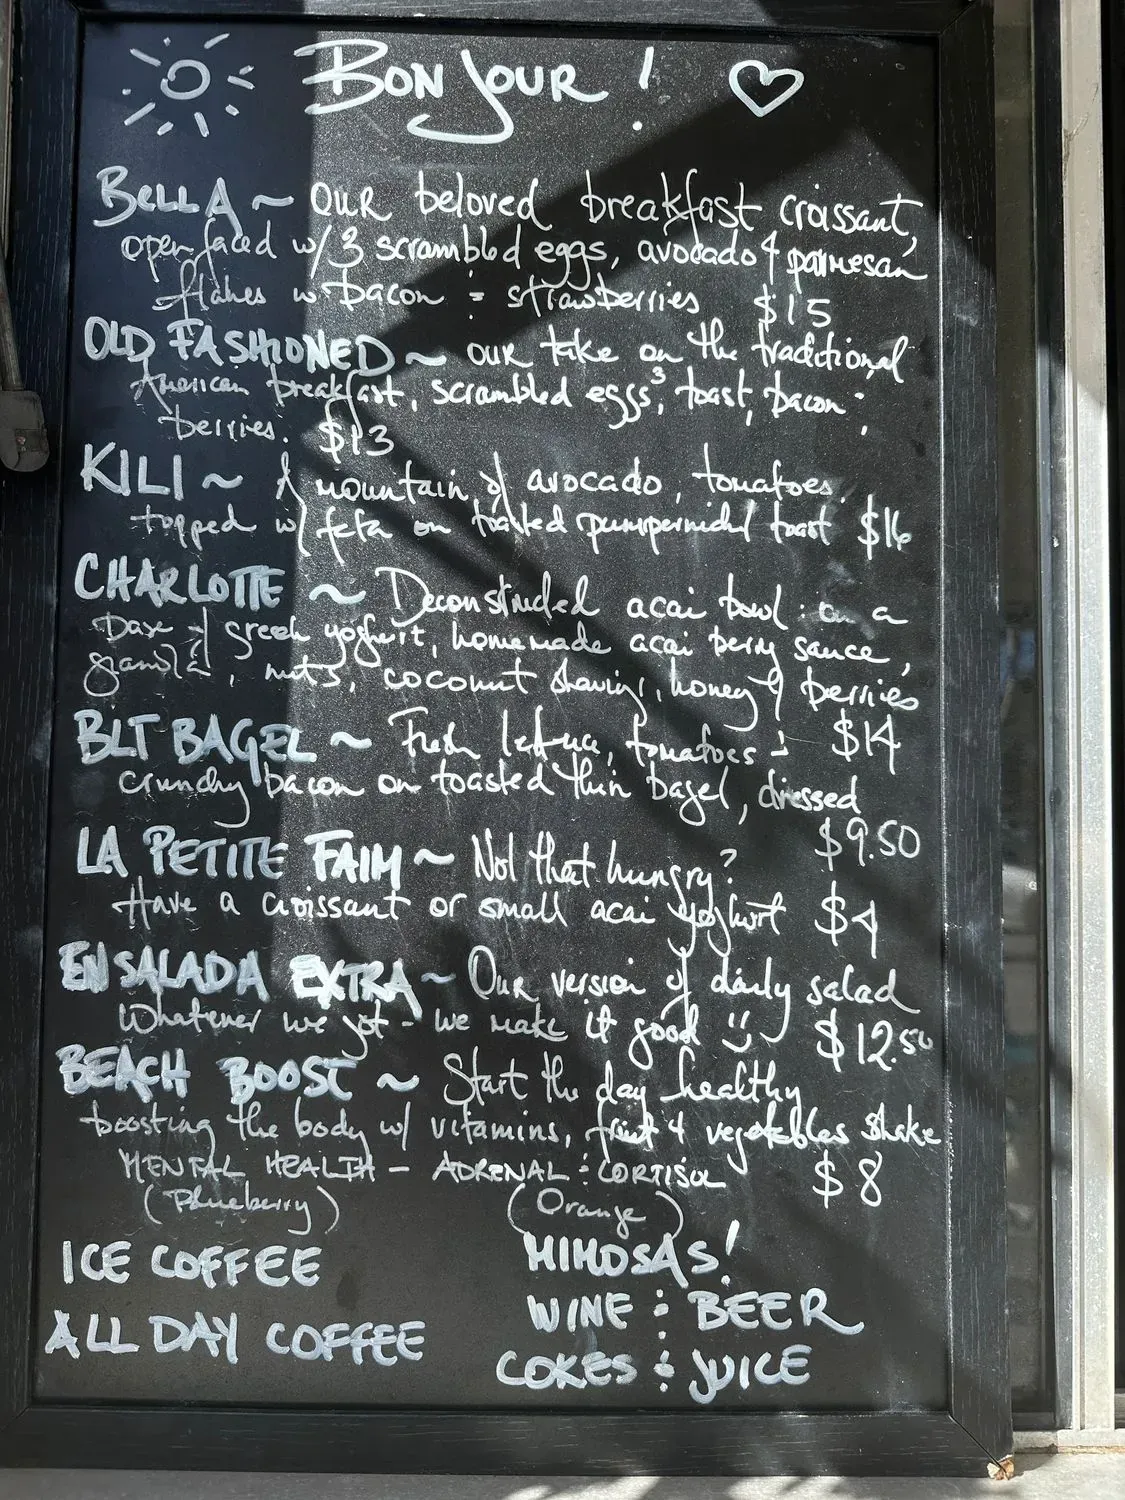 BON JOUR !
BELLA ~ OUR beloved breakfast croissant,
open faced w/ 3 scrambled eggs, avocado & parmesan
flakes w bacon & strawberries $15
OLD FASHIONED ~ our take on the traditional
American breakfast, scrambled eggs³, toast, bacon &
berries. $13
KILI ~ A mountain of avocado, tomatoes.
topped w/ feta on toasted pumpernickel toast $16
CHARLOTTE ~ Deconstructed acai bowl: on a
base of greek yoghurt, homemade acai berry sauce,
granola, nuts, coconut shavings, honey & berries
$14
BLT BAGEL ~ Fresh lettuce, tomatoes &
crunchy bacon on toasted thin bagel, dressed
$9.50
LA PETITE FAIM ~ Not that hungry?
Have a croissant or small acai yoghurt $4
ENSALADA EXTRA ~ Our version of daily salad
Whatever we got - we make it good $12.50
BEACH BOOST ~ Start the day healthy
boosting the body w/ vitamins, fruit & vegetables shake
MENTAL HEALTH - ADRENAL & CORTISOL $8
(Blueberry) (Orange)
ICE COFFEE
ALL DAY COFFEE
MIMOSAS!
WINE & BEER
COKES & JUICE